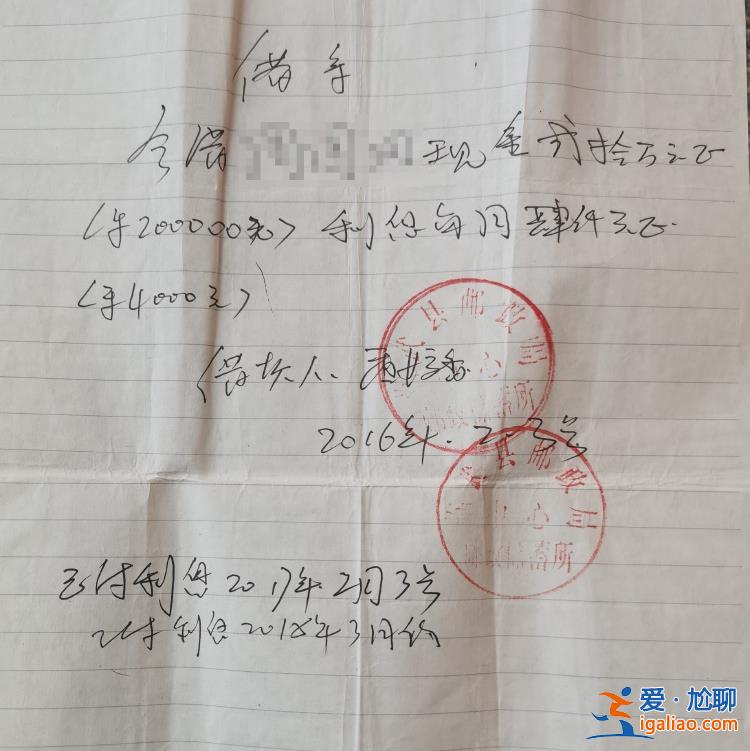 借条
今借 现金贰拾万元正
(¥200000元) 利息每月肆仟元正.
(¥4000元)
借款人.
2016年.2.3号
县邮政局
心
蓄所
县邮政局
中心
蓄所
已付利息2017年2月3号
已付利息2018年3月份
爱·尴聊
igaliao.com